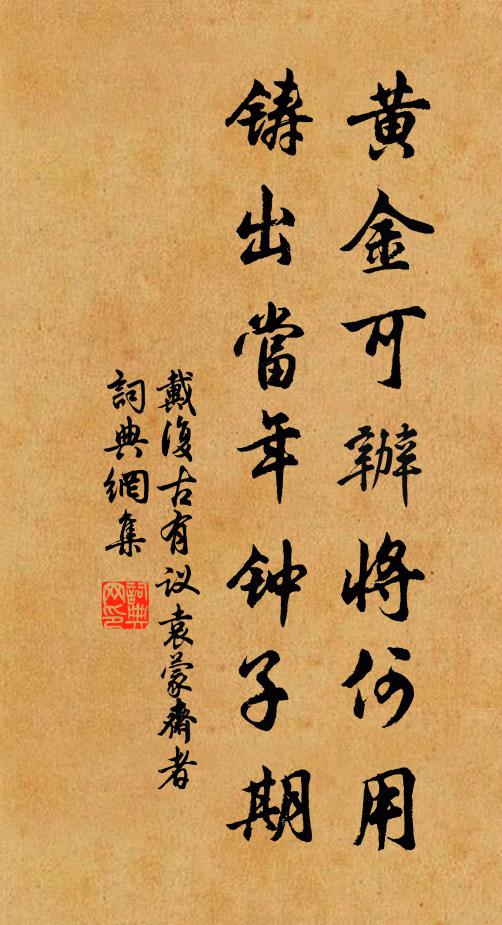 黃金可辦將何用
鑄出當年钟子期
戴復古有议袁蒙齋者
詞典網集
詞典
网印